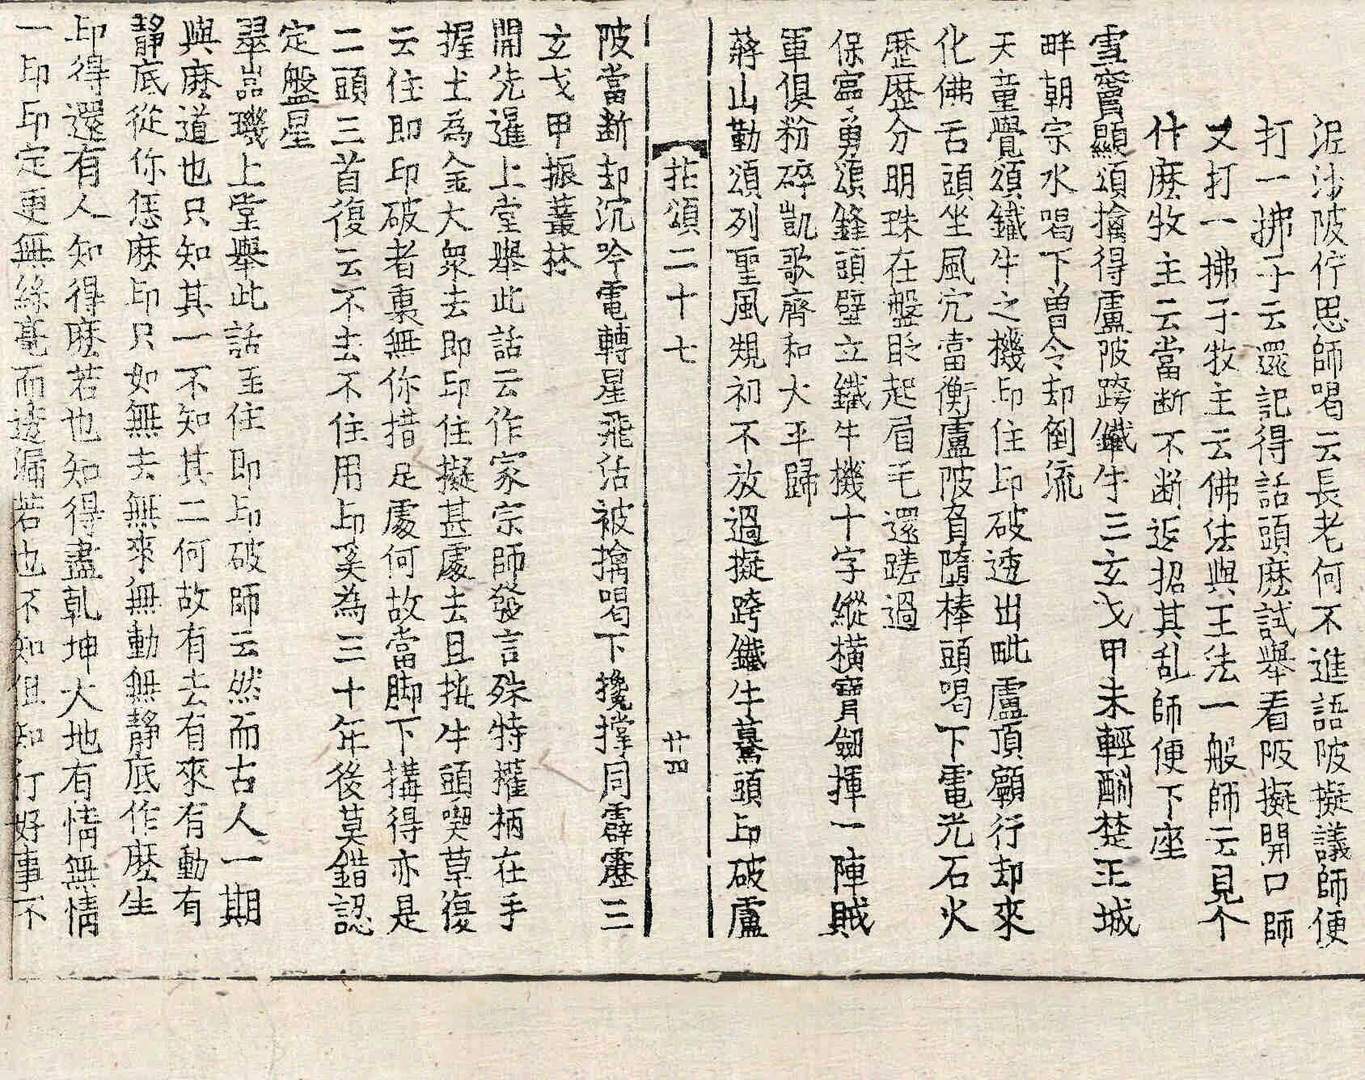 泥沙陂佇思師喝云長老何不進語陂擬議師便
打一拂子云還記得話頭麽試舉看陂擬開口師
又打一拂子牧主云佛法與王法一般師云見个
什麽牧主云當断不断返招其乱師便下座
雪竇顯頌擒得盧陂跨鐵牛三玄戈甲未輕酬楚王城
畔朝宗水喝下曽令却倒流
天童覺頌鐵牛之機印住印破透出毗盧頂𩕳行却來
化佛舌頭坐風宂當衡盧陂負墮棒頭喝下電光石火
歷歷分明珠在盤眨起眉毛還蹉過
保寧勇頌鋒頭壁立鐵牛機十字縱橫寶劔揮一陣賊
軍俱粉碎凱歌齊和大平歸
蔣山勤頌列聖風規初不放過擬跨鐵牛驀頭印破盧
拈頌二十七 廿四
陂當断却沉吟電轉星飛活被擒喝下攙撑同霹靂三
玄戈甲振叢林
開先暹上堂舉此話云作家宗師發言殊特權柄在手
握土為金大衆去即印住擬甚處去且拄牛頭喫草復
云住即印破者裏無你措足處何故當脚下搆得亦是
二頭三首復云不去不住用印奚為三十年後莫錯認
定盤星
翠嵓璣上堂舉此話至住即印破師云然而古人一期
與麽道也只知其一不知其二何故有去有來有動有
靜底從你恁麽印只如無去無來無動無靜底作麽生
印得還有人知得麽若也知得盡乾坤大地有情無情
一印印定更無絲毫而透漏若也不知但知行好事不